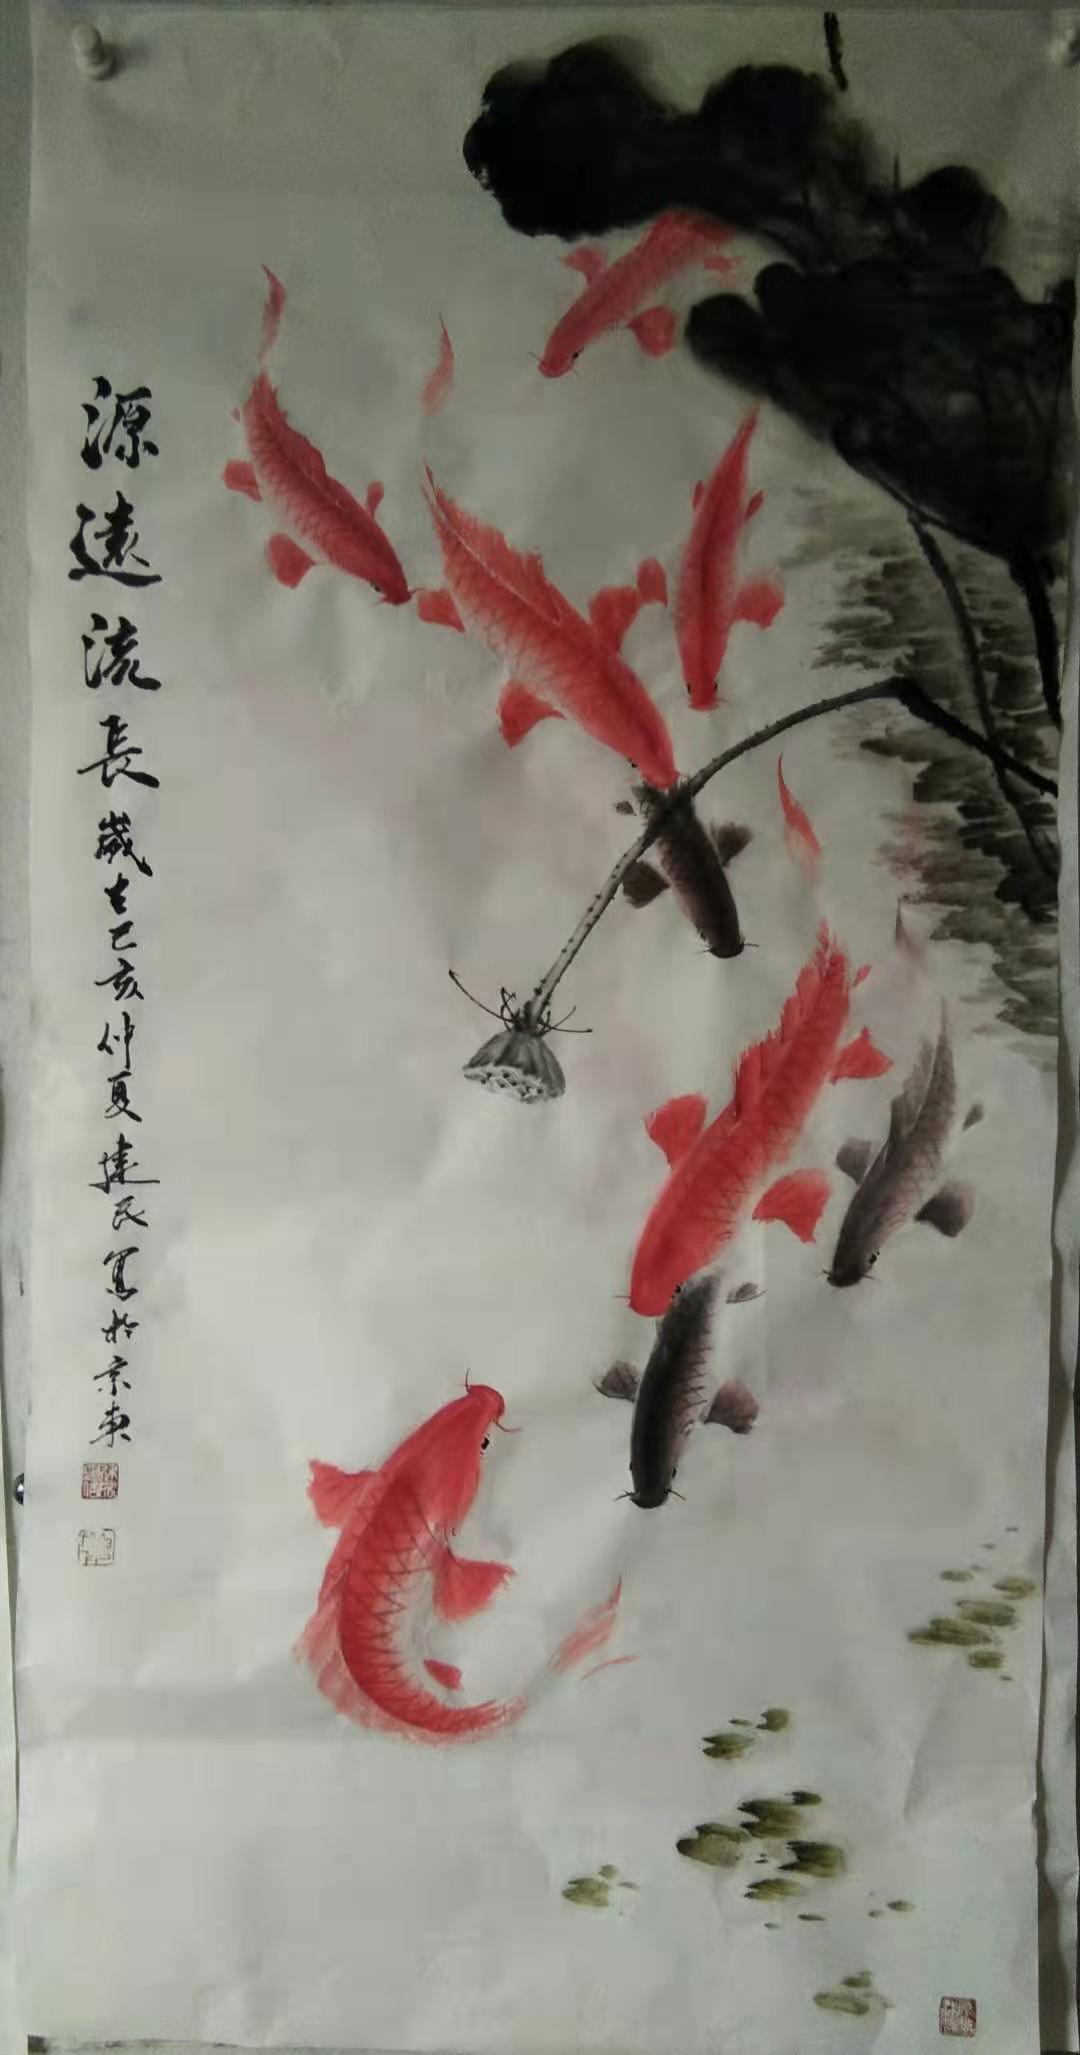 源遠流長歲在己亥仲夏建民寫於京東